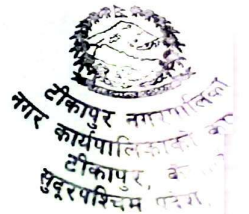 टीकापुर नगरपालिका
नगर कार्यपालिकाको
टीकापुर,
सुदूरपश्चिम प्रदेश,